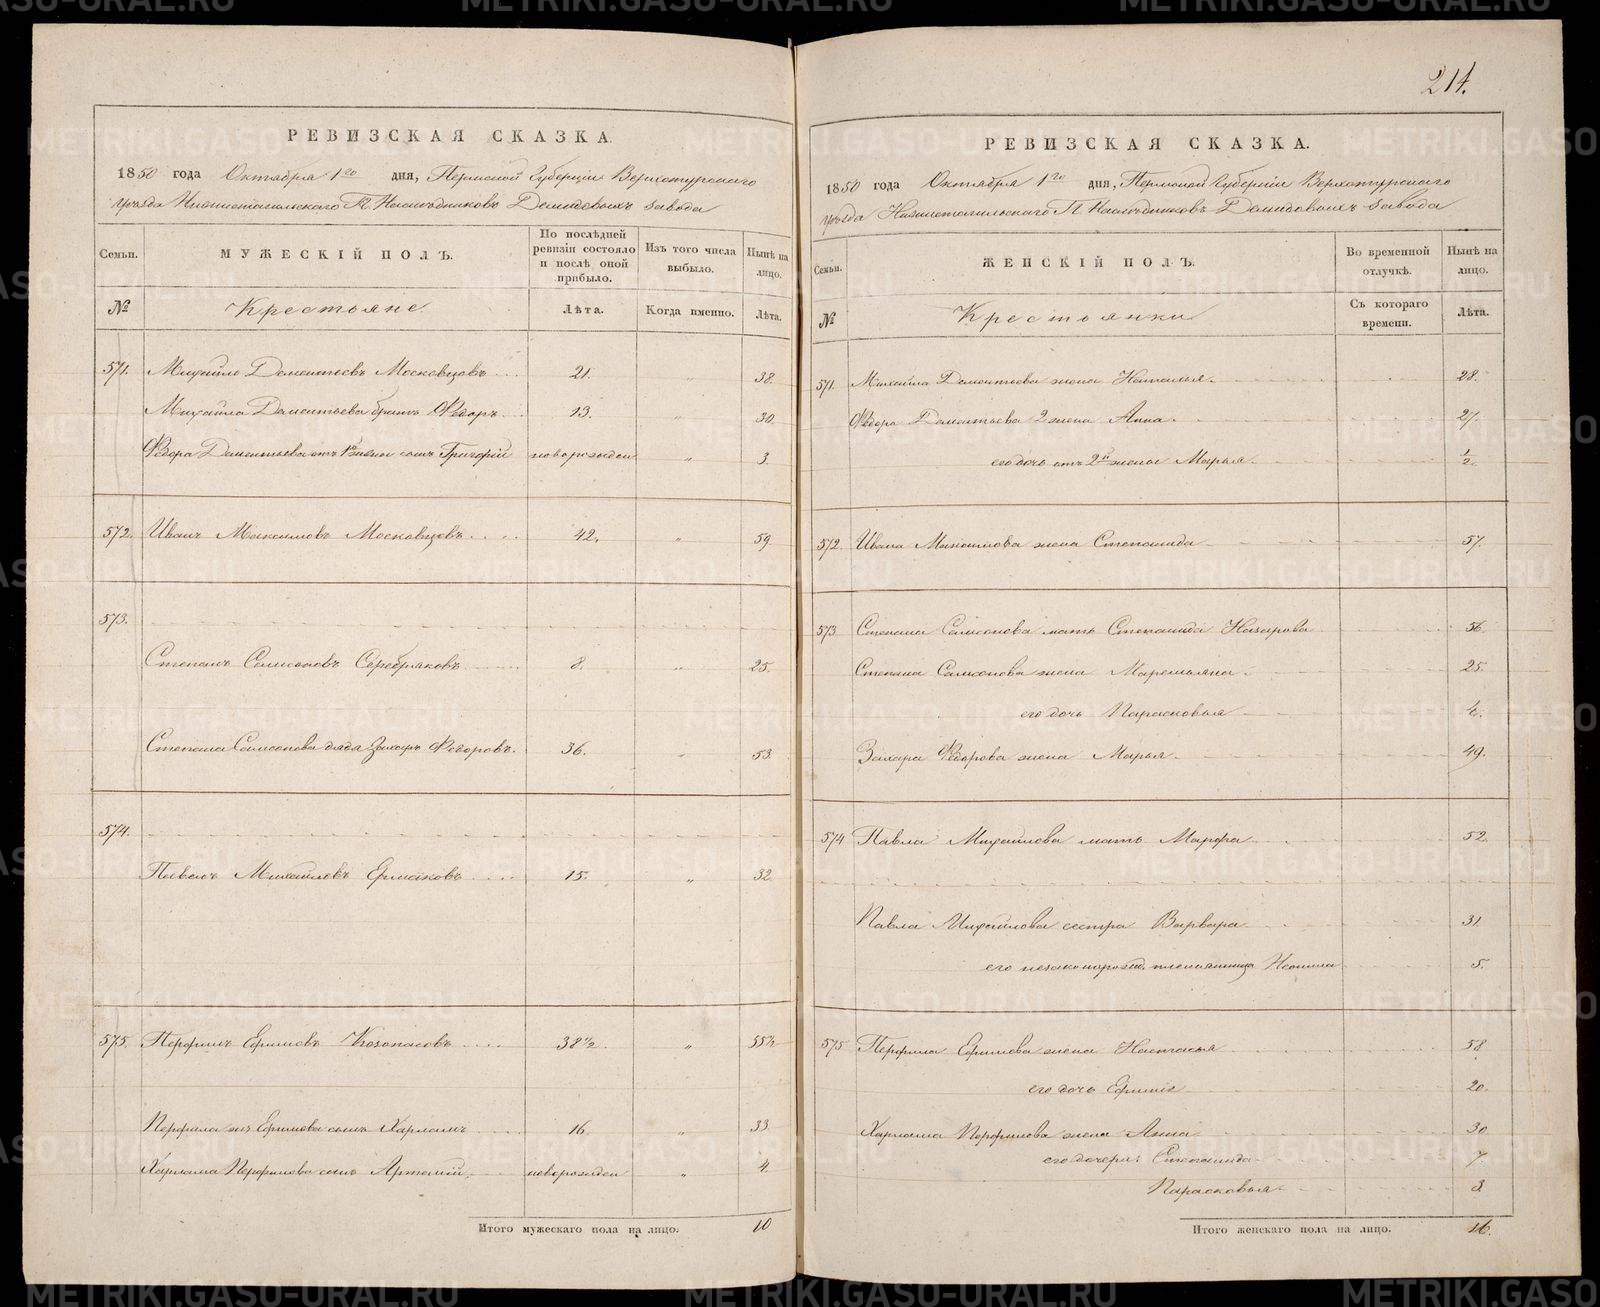 214.
РЕВИЗСКАЯ СКАЗКА.
1850 года Октября 1го дня, Пермской Губерніи Верхотурскаго
уѣзда Нижнетагильскаго Г. Наслѣдниковъ Демидовыхъ завода
Семьи. МУЖЕСКІЙ ПОЛЪ. По послѣдней ревизіи состояло и послѣ оной прибыло. Изъ того числа выбыло. Нынѣ на лицо.
№ Крестьяне Лѣта. Когда именно. Лѣта.
571. Михайло Дементьевъ Московцовъ 21. " 38.
Михайла Дементьева братъ Ѳедоръ 13. " 30.
Ѳедора Дементьева отъ 1й жены сынъ Григорій новорожден " 3.
572. Иванъ Максимовъ Московцовъ 42. " 59.
573.
Степанъ Самсоновъ Серебряковъ 8. " 25.
Степана Самсонова дядя Захаръ Ѳедоровъ. 36. " 53.
574.
Павелъ Михайловъ Ермаковъ 15. " 32.
575. Перфилъ Ефимовъ Козопасовъ 38½. " 55½
Перфила Ефимова сынъ Харламъ 16. " 33
Харлама Перфилова сынъ Артемій новорожден " 4.
Итого мужескаго пола на лицо. 10
РЕВИЗСКАЯ СКАЗКА.
1850 года Октября 1го дня, Пермской Губерніи Верхотурскаго
уѣзда Нижнетагильскаго Г. Наслѣдниковъ Демидовыхъ завода
Семьи. ЖЕНСКІЙ ПОЛЪ. Во временной отлучкѣ. Нынѣ на лицо.
№ Крестьянки Съ котораго времени. Лѣта.
571. Михайла Дементьева жена Наталья. 28.
Ѳедора Дементьева 2 жена Анна. 27.
его дочь отъ 2й жены Марья. ½.
572. Ивана Максимова жена Степанида 57.
573. Степана Самсонова мать Степанида Назарова 56.
Степана Самсонова жена Маремьяна. 25.
его дочь Парасковья 4.
Захара Ѳедорова жена Марья. 49.
574 Павла Михайлова мать Марфа 52.
Павла Михайлова сестра Варвара 31.
его незаконорожд. племянница Неонила 5.
575 Перфила Ефимова жена Настасья 58.
его дочь Ефимія 20.
Харлама Перфилова жена Анна 30
его дочери: Степанида 7.
Парасковья 3.
Итого женскаго пола на лицо. 16.
METRIKI.GASO-URAL.RU